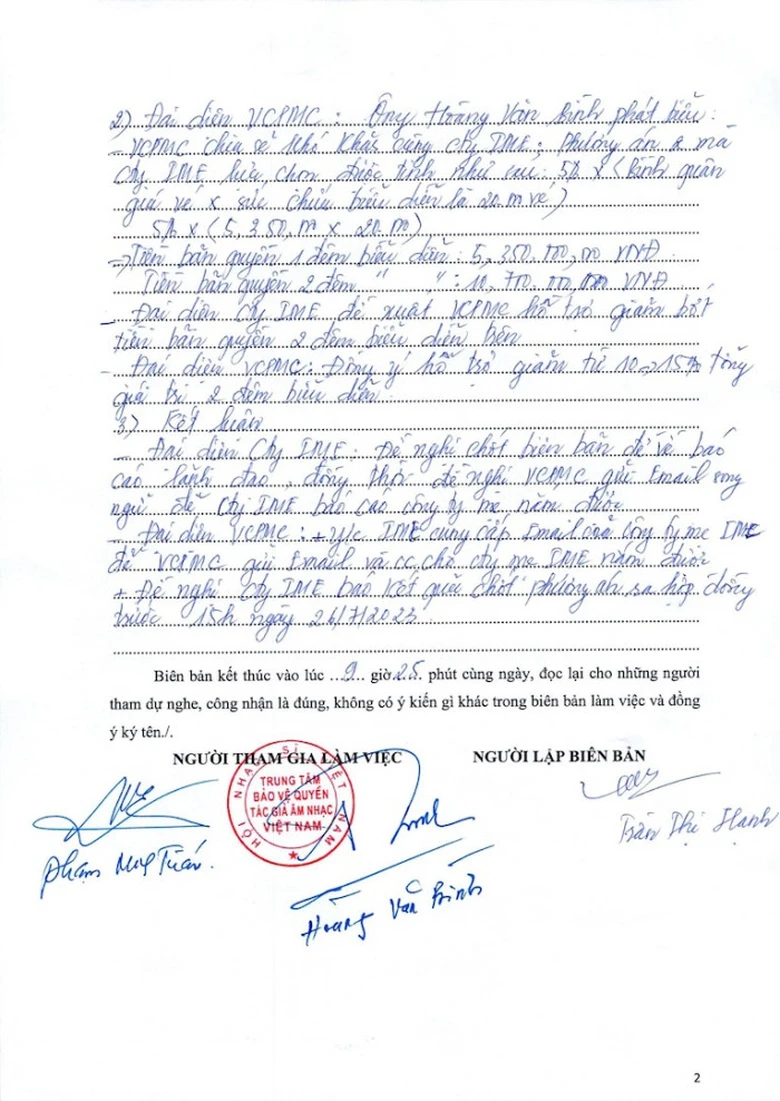 2) Đại diện VCPMC : Ông Hoàng Văn Bình phát biểu :
- VCPMC chia sẻ khó khăn cùng Cty IME ; Phương án 2 mà
Cty IME lựa chọn được tính như sau : 5% x (Bình quân
giá vé x sức chứa biểu diễn là 20.m vé)
5% x (5,350,m x 20.m)
=> Tiền bản quyền 1 đêm biểu diễn : 5,350.000,00 VNĐ
Tiền bản quyền 2 đêm " " : 10,700.000,000 VNĐ
- Đại diện Cty IME đề xuất VCPMC hỗ trợ giảm bớt
tiền bản quyền 2 đêm biểu diễn trên
- Đại diện VCPMC : Đồng ý hỗ trợ giảm từ 10->15% tổng
giá trị 2 đêm biểu diễn
3) Kết luận
- Đại diện Cty IME : Đề nghị chốt biên bản để về báo
cáo lãnh đạo, đồng thời đề nghị VCPMC gửi Email song
ngữ để Cty IME báo cáo công ty mẹ nắm được
- Đại diện VCPMC : + y/c IME cung cấp Email của công ty mẹ IME
để VCPMC gửi Email và cc cho cty mẹ IME nắm được
+ Đề nghị Cty IME báo kết quả chốt phương án sa hợp đồng
trước 15h ngày 26/7/2023
Biên bản kết thúc vào lúc ...9... giờ 25. phút cùng ngày, đọc lại cho những người
tham dự nghe, công nhận là đúng, không có ý kiến gì khác trong biên bản làm việc và đồng
ý ký tên./.
NGƯỜI THAM GIA LÀM VIỆC NGƯỜI LẬP BIÊN BẢN
HỘI NHẠC SĨ VIỆT NAM
TRUNG TÂM
BẢO VỆ QUYỀN
TÁC GIẢ ÂM NHẠC
VIỆT NAM
Trần Thị Hạnh
Phạm Tuấn.
Hoàng Văn Bình
2